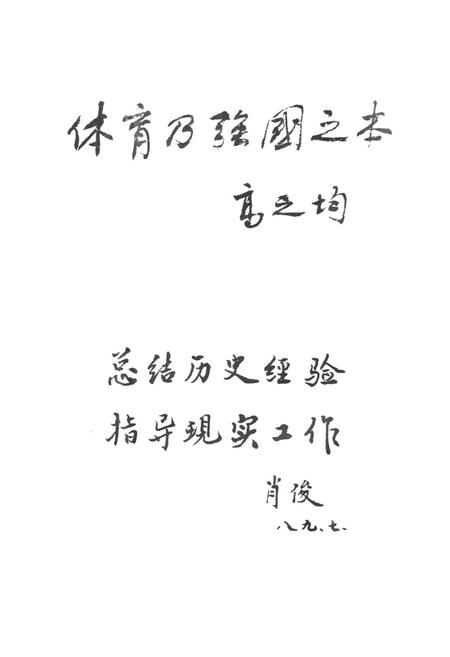 体育乃强國之本
高之均
总结历史经验
指导现实工作
肖俊
八九.七.